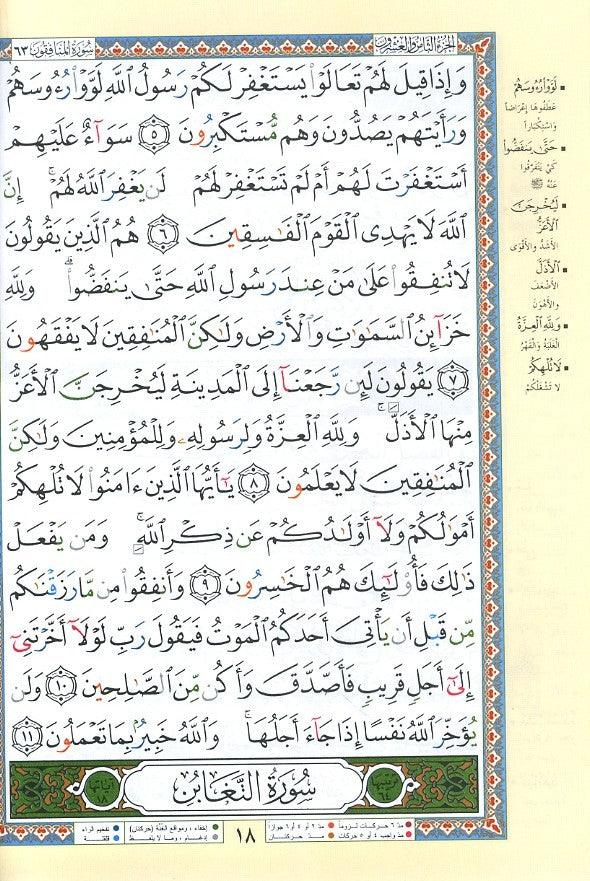 الجزء الثامن والعشرون
سورة المنافقون ٦٣
وَإِذَا قِيلَ لَهُمْ تَعَالَوْا۟ يَسْتَغْفِرْ لَكُمْ رَسُولُ ٱللَّهِ لَوَّوْا۟ رُءُوسَهُمْ
وَرَأَيْتَهُمْ يَصُدُّونَ وَهُم مُّسْتَكْبِرُونَ ٥ سَوَآءٌ عَلَيْهِمْ
أَسْتَغْفَرْتَ لَهُمْ أَمْ لَمْ تَسْتَغْفِرْ لَهُمْ لَن يَغْفِرَ ٱللَّهُ لَهُمْ ۚ إِنَّ
ٱللَّهَ لَا يَهْدِى ٱلْقَوْمَ ٱلْفَـٰسِقِينَ ٦ هُمُ ٱلَّذِينَ يَقُولُونَ
لَا تُنفِقُوا۟ عَلَىٰ مَنْ عِندَ رَسُولِ ٱللَّهِ حَتَّىٰ يَنفَضُّوا۟ ۗ وَلِلَّهِ
خَزَآئِنُ ٱلسَّمَـٰوَٰتِ وَٱلْأَرْضِ وَلَـٰكِنَّ ٱلْمُنَـٰفِقِينَ لَا يَفْقَهُونَ
٧ يَقُولُونَ لَئِن رَّجَعْنَآ إِلَى ٱلْمَدِينَةِ لَيُخْرِجَنَّ ٱلْأَعَزُّ
مِنْهَا ٱلْأَذَلَّ ۚ وَلِلَّهِ ٱلْعِزَّةُ وَلِرَسُولِهِۦ وَلِلْمُؤْمِنِينَ وَلَـٰكِنَّ
ٱلْمُنَـٰفِقِينَ لَا يَعْلَمُونَ ٨ يَـٰٓأَيُّهَا ٱلَّذِينَ ءَامَنُوا۟ لَا تُلْهِكُمْ
أَمْوَٰلُكُمْ وَلَآ أَوْلَـٰدُكُمْ عَن ذِكْرِ ٱللَّهِ ۚ وَمَن يَفْعَلْ
ذَٰلِكَ فَأُو۟لَـٰٓئِكَ هُمُ ٱلْخَـٰسِرُونَ ٩ وَأَنفِقُوا۟ مِن مَّا رَزَقْنَـٰكُم
مِّن قَبْلِ أَن يَأْتِىَ أَحَدَكُمُ ٱلْمَوْتُ فَيَقُولَ رَبِّ لَوْلَآ أَخَّرْتَنِىٓ
إِلَىٰٓ أَجَلٍ قَرِيبٍ فَأَصَّدَّقَ وَأَكُن مِّنَ ٱلصَّـٰلِحِينَ ١٠ وَلَن
يُؤَخِّرَ ٱللَّهُ نَفْسًا إِذَا جَآءَ أَجَلُهَا ۚ وَٱللَّهُ خَبِيرٌۢ بِمَا تَعْمَلُونَ ١١
ترتيبها ٦٤ سُورَةُ التَّغَابُنِ آياتها ١٨
لَوَّوْا رُءُوسَهُمْ
عَطَفُوهَا إِعْرَاضًا
وَاسْتِكْبَارًا
حَتَّىٰ يَنفَضُّوا
كَيْ يَتَفَرَّقُوا
عَنْهُ ﷺ
لَيُخْرِجَنَّ
الْأَعَزُّ
الأَشَدُّ وَالأَقْوَى
الْأَذَلَّ
الأَضْعَفَ
وَالأَهْوَنَ
وَلِلَّهِ الْعِزَّةُ
الغَلَبَةُ وَالقَهْرُ
لَا تُلْهِكُمْ
لَا تَشْغَلْكُمْ
مدّ ٦ حركات لزوماً مدّ ٢ أو ٤ أو ٦ جوازاً
مدّ واجب ٤ أو ٥ حركات مدّ حركتان
١٨
إخفاء، ومواقع الغُنّة (حركتان) تفخيم الراء
إدغام، وما لا يُلفظ قلقلة